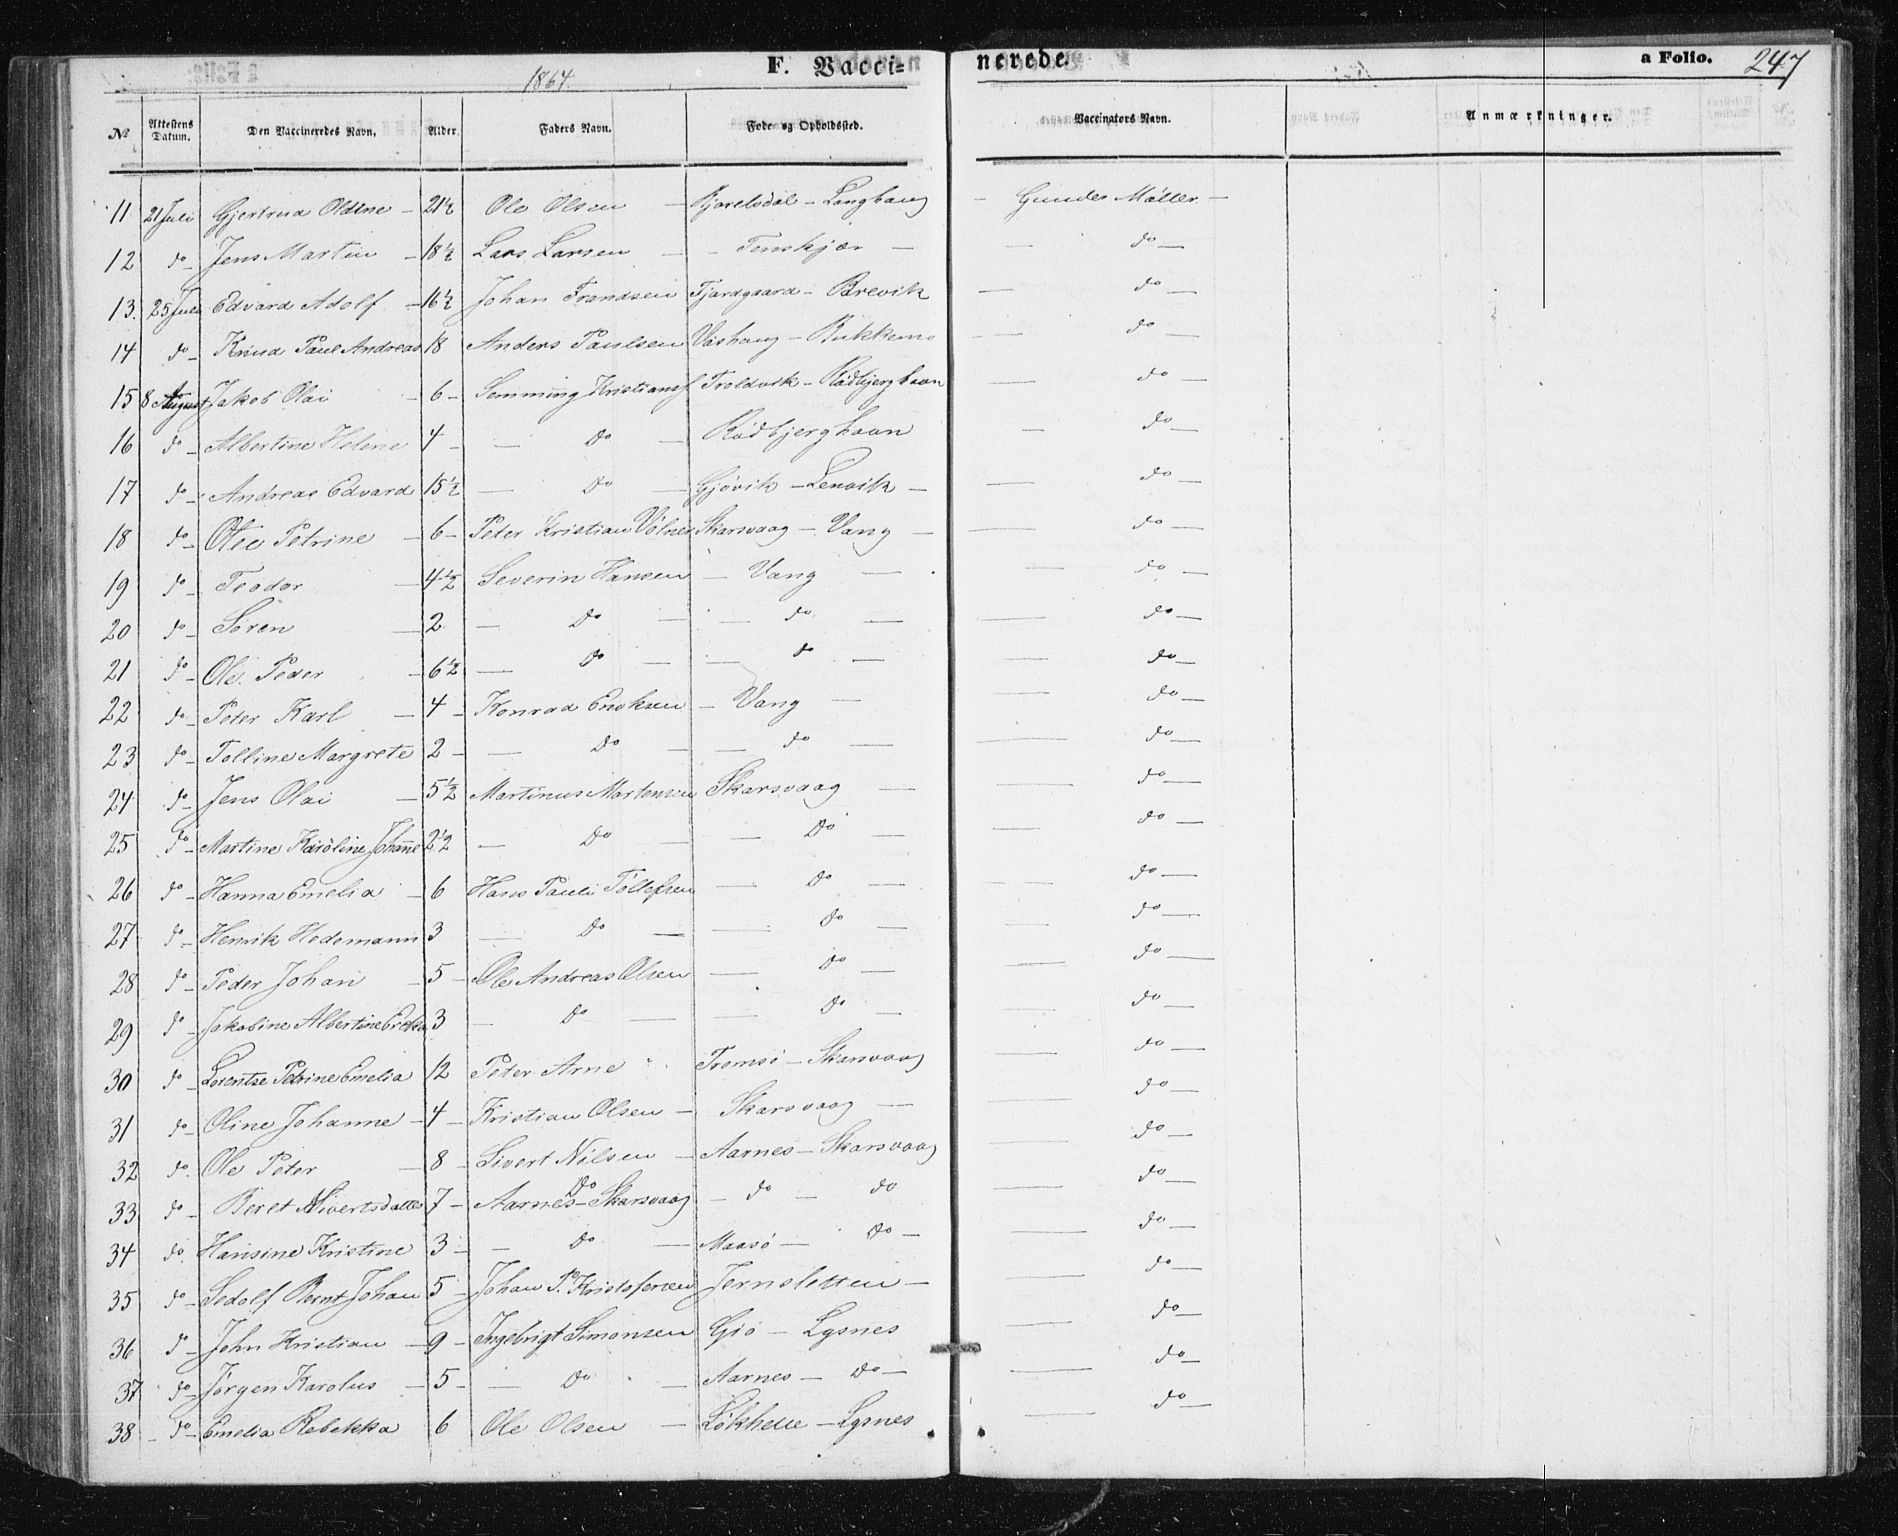 F. Vaccinerede. a Folio. 247
1864.
№ Attestens Datum. Den Vaccineredes Navn. Alder. Faders Navn. Føde- og Opholdssted. Vaccinators Navn. Anmærkninger.
11 21 Juli Gjertrud Oldine - 21½ Ole Olsen - - Langhaug - Gunder Møller -
12 do - Jens Martin - 18½ Lars Larsen - - Tenskjær - - do -
13. 25 Juli Edvard Adolf - 16½ Johan Frandsen Fjordgaard - Brevik - do -
14 do - Knud Paul Andreas 18 Anders Paulsen Vashaug - Bukkemo - do -
15 8 August Jakob Olai - 6 - Hemming Kristians. Troldvik - Rødbjerghavn - do -
16 do - Albertine Helene 4 - - do - Rødbjerghavn - do -
17 do - Andreas Edvard 15½ - do - Gjövik - Lenvik - - do -
18 do - Olee Petrine - 6 - Peter Kristian Volner Skarsvaag - Vang - - do -
19 do - Teodor - 4½ Severin Hansen - Vang - - do -
20 do - Sören - 2 - do - - do - - do -
21 do - Ole Peder - 6½ - do - - do - - do -
22 do - Peter Karl - 4 - Konrad Enoksen - Vang - - do -
23 do - Tolline Margrete 2 - - do - - do - - do -
24 do - Jens Olai - 5½ Martinus Mortensen Skarsvaag - - do -
25 do - Martine Karoline Johanne 2½ - do - - do - - do -
26 do - Hanna Emelia - 6 Hans Pauli Tollefsen - do - - do -
27 do - Henrik Hedemann 3 - do - - do - - do -
28 do - Peder Johan - 5 - Ole Andreas Olsen - do - - do -
29 do - Jakobine Albertine 3 - do - - do - - do -
30 do - Lorentse Petrine Emelia 12 Peter Arne Tromsö - Skarsvaag - do -
31 do - Oline Johanne - 4 - Kristian Olsen - Skarsvaag - - do -
32 do. Ole Peter - 8 - Sivert Nilsen - Aarnes - Skarsvaag - do -
33 do - Beret Sivertsdatter 7 - Aarnes - Skarsvaag do - do - do - do -
34 do. Hansine Kristine 3 - - do - Maasö - do - - do -
35 do - Sedolf Bernt Johan 5 - Johan P. Kristofersen Jernsletten - - do -
36 do - John Kristian - 9 - Ingebrigt Simonsen Giö - Lysnes - do -
37 do - Jörgen Karolus - 5 - - do - Aarnes - do - - do -
38 - do - Emelia Rebekka 6 Ole Olsen - Løkhelle - Lysnes - do -